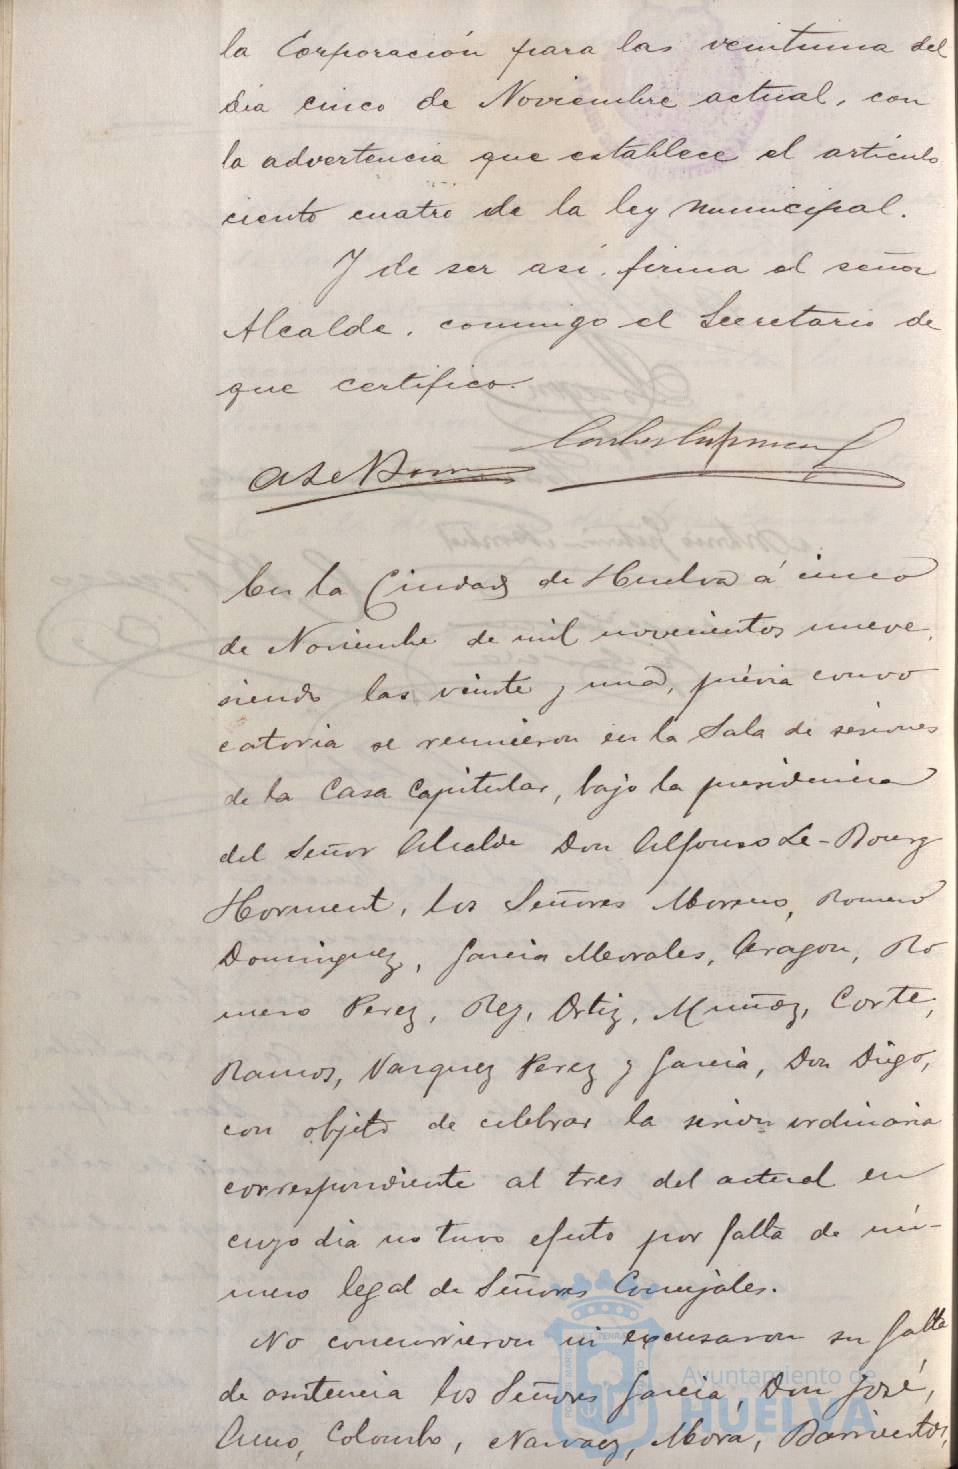 la Corporación para las veintiuna del
dia cinco de Noviembre actual, con
la advertencia que establece el articulo
ciento cuatro de la ley municipal.
Y de ser asi, firma el señor
Alcalde, conmigo el Secretario de
que certifico.
En la Ciudad de Huelva á cinco
de Noviembre de mil novecientos nueve,
siendo las veinte y una, prévia convo
catoria se reunieron en la Sala de sesiones
de la Casa Capitular, bajo la presidencia
del Señor Alcalde Don Alfonso Le-Bourg
Horment, los Señores Moreno, Romero
Dominguez, Garcia Morales, Aragon, Ro
mero Perez, Rey, Ortiz, Muñoz, Corte,
Ramos, Vazquez Perez y Garcia, Don Diego,
con objeto de celebrar la sesion ordinaria
correspondiente al tres del actual en
cuyo dia no tuvo efecto por falta de nú-
mero legal de Señores Concejales.
No concurrieron ni excusaron su falta
de asistencia los Señores Garcia, Don José,
Colombo, Narvaez, Mora, Barrientos,
Ayuntamiento de
HUELVA